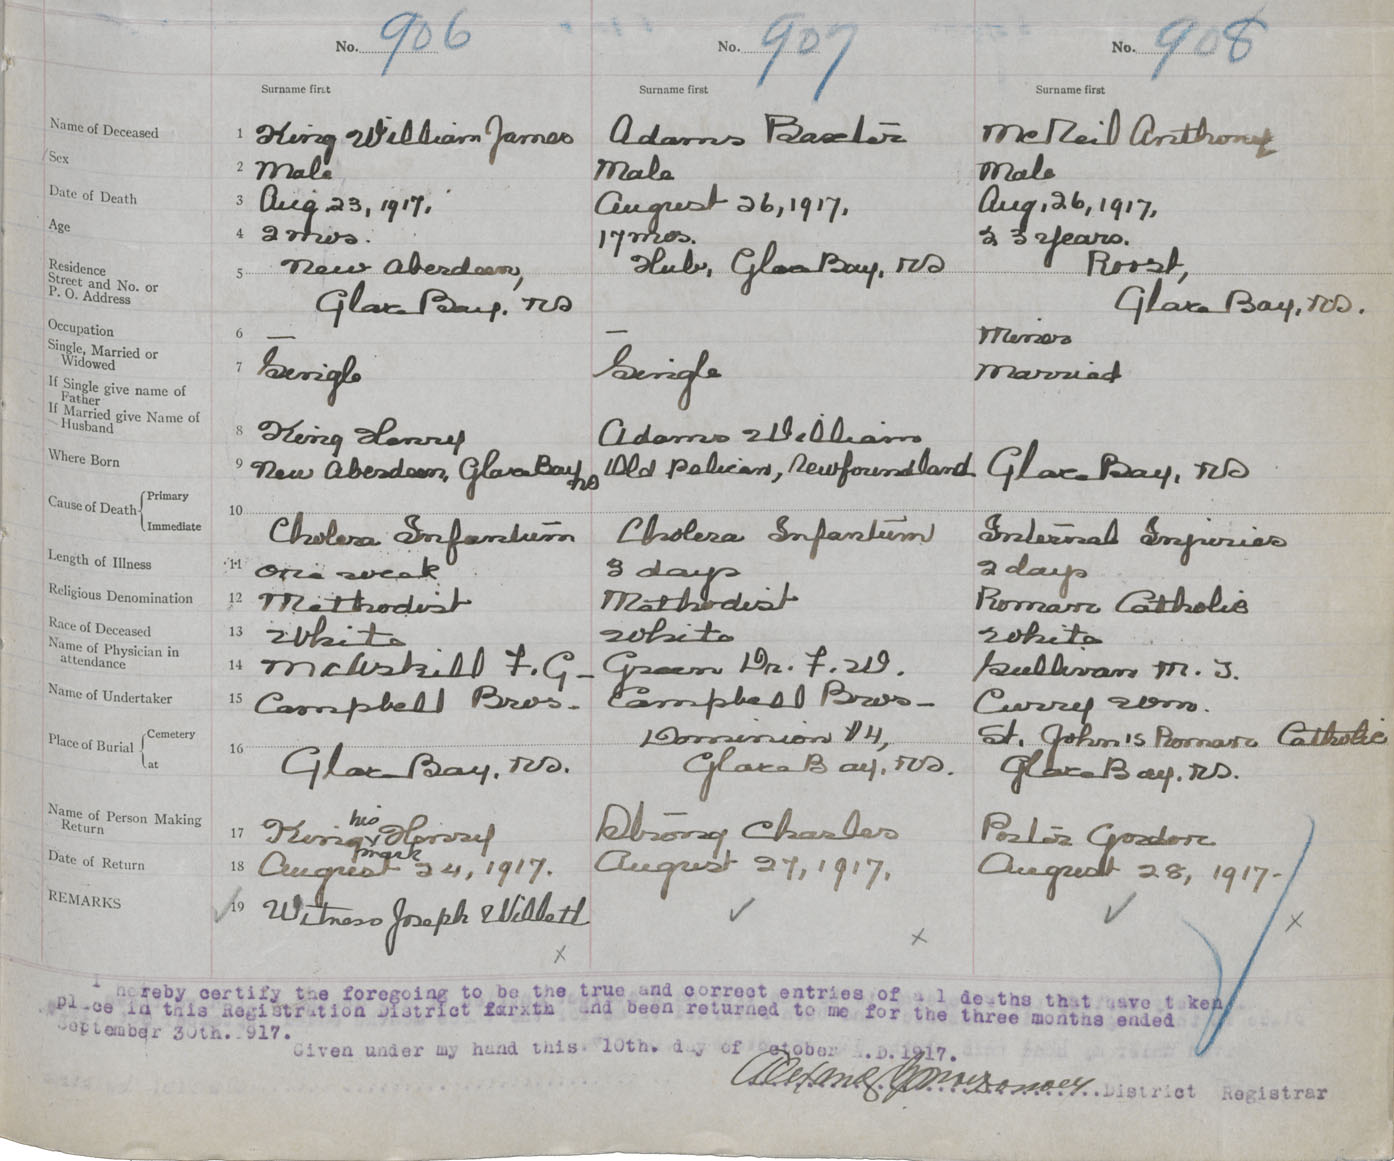 No. 906 No. 907 No. 908
Surname first Surname first Surname first
Name of Deceased 1 King William James Adams Baxter McNeil Anthony
Sex 2 Male Male Male
Date of Death 3 Aug 23, 1917. August 26, 1917. Aug, 26, 1917.
Age 4 2 mos. 17 mos. 23 years.
Residence 5 New Aberdeen, Hub, Glace Bay, NS Roost,
Street and No. or
P. O. Address Glace Bay, NS Glace Bay, NS.
Occupation 6 — — Miner
Single, Married or
Widowed 7 Single Single Married
If Single give name of
Father
If Married give Name of
Husband 8 King Henry Adams William
Where Born 9 New Aberdeen, Glace Bay NS Old Pelican, Newfoundland Glace Bay, NS
Cause of Death Primary 10
Immediate Cholera Infantum Cholera Infantum Internal Injuries
Length of Illness 11 one week 3 days 2 days
Religious Denomination 12 Methodist Methodist Roman Catholic
Race of Deceased 13 White White White
Name of Physician in
attendance 14 McAskill F. G– Green Dr. F. W. Sullivan M. T.
Name of Undertaker 15 Campbell Bros– Campbell Bros– Curry Wm.
Place of Burial Cemetery 16 Dominion #4, St. John's Roman Catholic
at Glace Bay, NS. Glace Bay, NS. Glace Bay, NS.
Name of Person Making
Return 17 King his x mark Henry Strong Charles Porter Gordon
Date of Return 18 August 24, 1917. August 27, 1917. August 28, 1917–
REMARKS 19 Witness Joseph Willett
x x x
I hereby certify the foregoing to be the true and correct entries of all deaths that have taken
place in this Registration District and been returned to me for the three months ended
September 30th. 917.
Given under my hand this 10th. day of October A.D.1917.
District Registrar